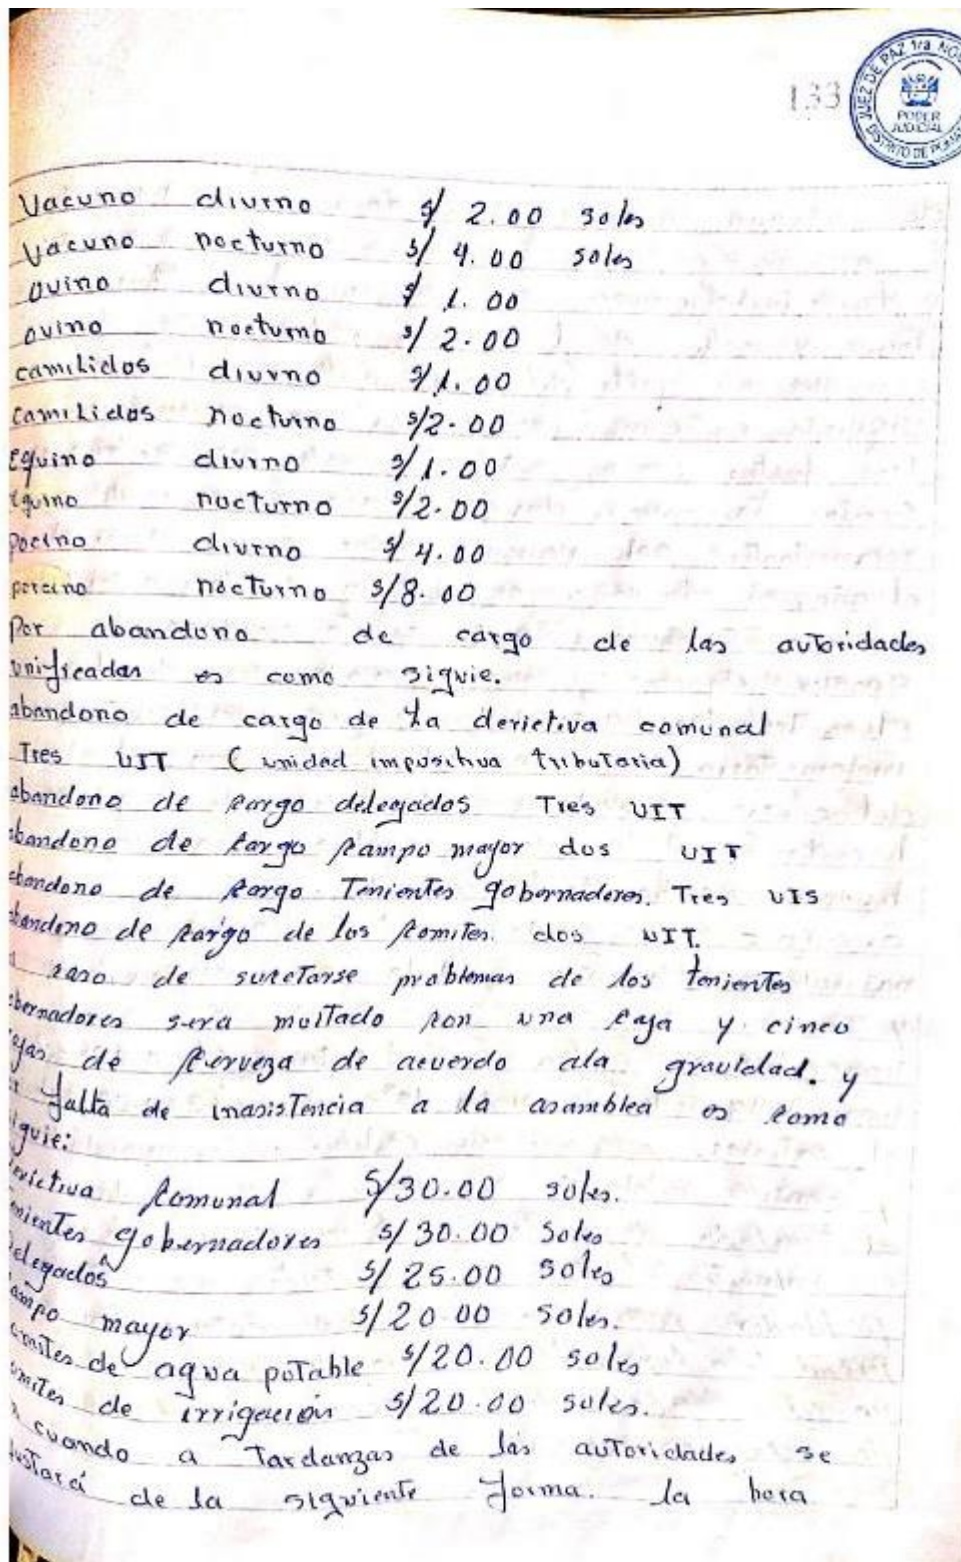 133
JUEZ DE PAZ 1ra NO
PODER
JUDICIAL
DISTRITO DE
Vacuno diurno s/ 2.00 soles
Vacuno nocturno s/ 4.00 soles
ovino diurno s/ 1.00
ovino nocturno s/ 2.00
camilidos diurno s/1.00
camilidos nocturno s/2.00
Equino diurno s/1.00
equino nocturno s/2.00
pocino diurno s/ 4.00
porcino nocturno s/8.00
Por abandono de cargo de las autoridades
unificadas es como siguie.
abandono de cargo de La derictiva comunal
Tres UIT (unidad impusitiva tributaria)
abandono de cargo delegados Tres UIT
abandono de cargo campo mayor dos UIT
abandono de cargo Tenientes gobernadores. Tres UIS
abandono de cargo de los comites. dos UIT.
caso de sucetarse problemas de los tenientes
gobernadores sera multado con una caja y cinco
cajas de cerveza de acuerdo ala gravidad. y
falta de inasistencia a la asamblea es como
siguie:
derictiva comunal s/30.00 soles.
Tenientes gobernadores s/30.00 soles
Delegados s/25.00 soles
campo mayor s/20.00 soles.
comites de agua potable s/20.00 soles
comites de irrigación s/20.00 soles.
cuando a Tardanzas de las autoridades se
de la siguiente forma. la hora